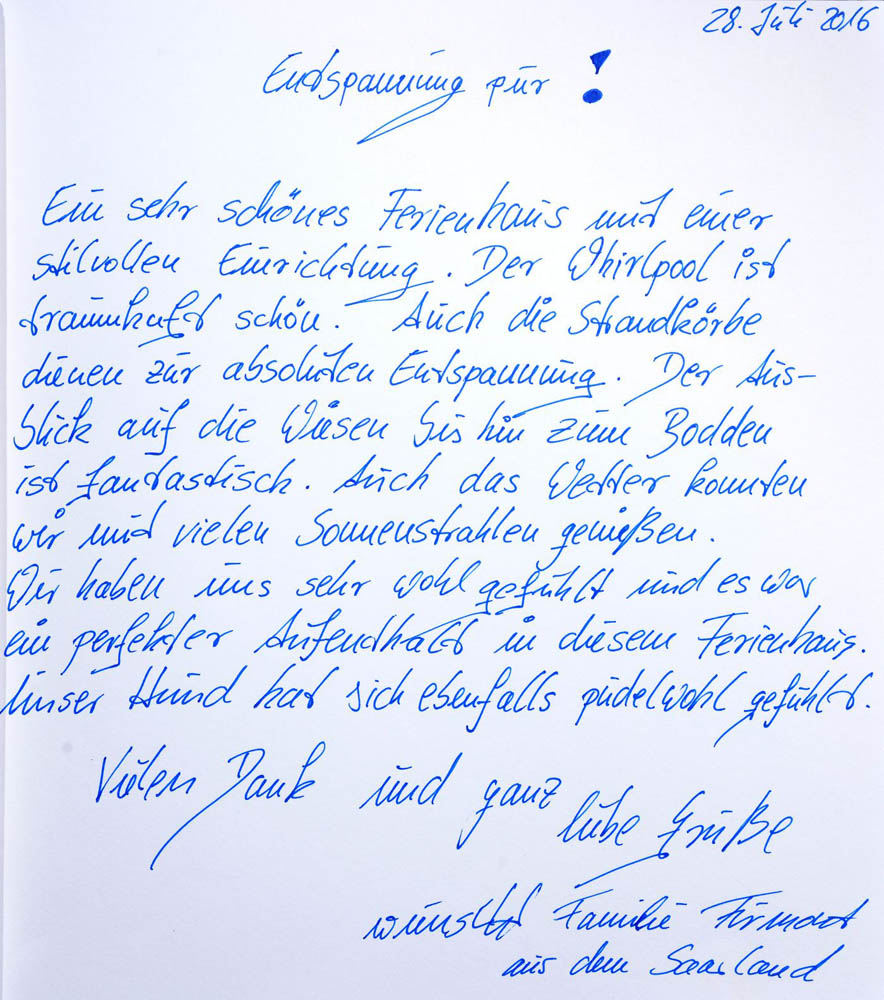 28. Juli 2016
Entspannung pur!
Ein sehr schönes Ferienhaus mit einer
stilvollen Einrichtung. Der Whirlpool ist
traumhaft schön. Auch die Strandkörbe
dienen zur absoluten Entspannung. Der Aus-
blick auf die Wiesen bis hin zum Bodden
ist fantastisch. Auch das Wetter konnten
wir mit vielen Sonnenstrahlen genießen.
Wir haben uns sehr wohl gefühlt und es war
ein perfekter Aufenthalt in diesem Ferienhaus.
Unser Hund hat sich ebenfalls pudelwohl gefühlt.
Vielen Dank und ganz
liebe Grüße
wünscht Familie
aus dem Saarland